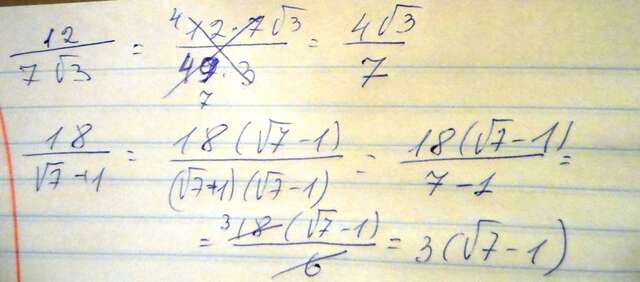 12/(7√3) = 12·7√3/(49·3) = 4√3/7
18/(√7+1) = 18(√7-1)/((√7+1)(√7-1)) = 18(√7-1)/(7-1) =
= 18(√7-1)/6 = 3(√7-1)